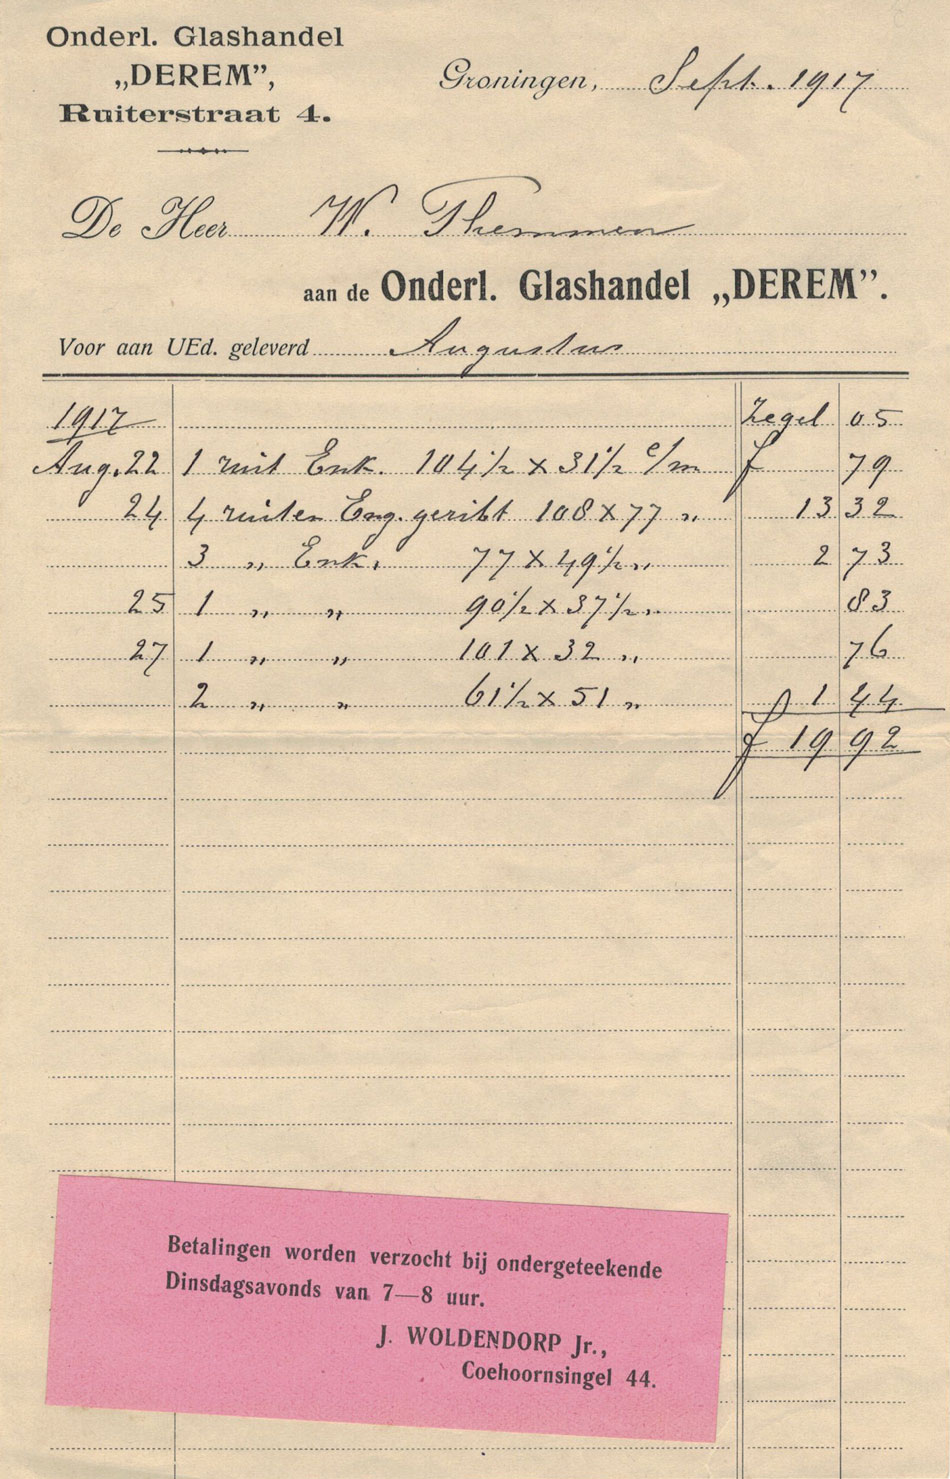 Onderl. Glashandel
„DEREM”,
Ruiterstraat 4.
Groningen, Sept. 1917
De Heer W. Themmen
aan de Onderl. Glashandel „DEREM”.
Voor aan UEd. geleverd Augustus
1917 Zegel 05
Aug. 22 1 ruit Enk. 104 1/2 x 31 1/2 c/m f 79
24 4 ruiten Eng. geribt 108 x 77 „ 13 32
3 „ Enk. 77 x 49 1/2 „ 2 73
25 1 „ „ 90 1/2 x 37 1/2 „ 83
27 1 „ „ 101 x 32 „ 76
2 „ „ 61 1/2 x 51 „ 1 44
f 19 92
Betalingen worden verzocht bij ondergeteekende
Dinsdagsavonds van 7—8 uur.
J. WOLDENDORP Jr.,
Coehoornsingel 44.